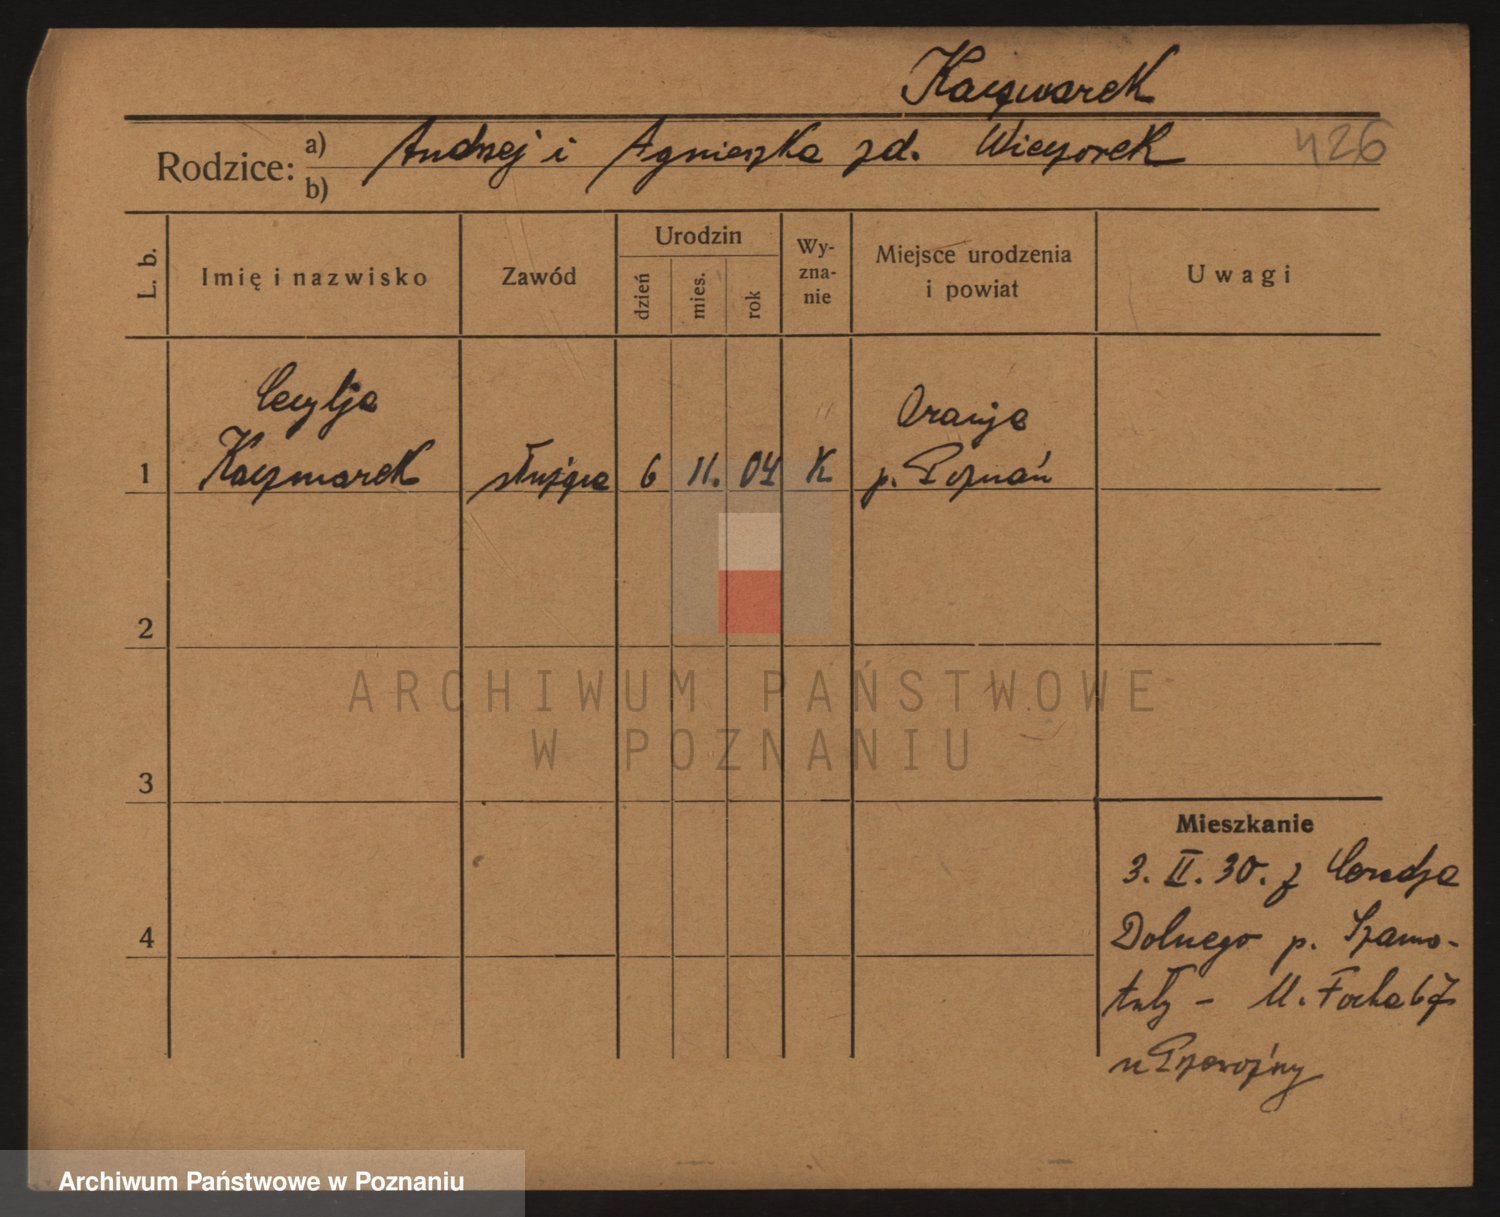 Kaczmarek
426
Rodzice: a) Andrzej i Agnieszka zd. Wieczorek
b)
L. b.
Imię i nazwisko
Zawód
Urodzin
dzień
mies.
rok
Wy-
zna-
nie
Miejsce urodzenia
i powiat
Uwagi
Cecylja
Kaczmarek
służąca
6
11.
04
K
p. Poznań
1
2
3
4
Mieszkanie
3. II. 30. z
Dolnego p. Szamo-
tuły – M. Focha 67
u
ARCHIWUM PAŃSTWOWE
W POZNANIU
Archiwum Państwowe w Poznaniu